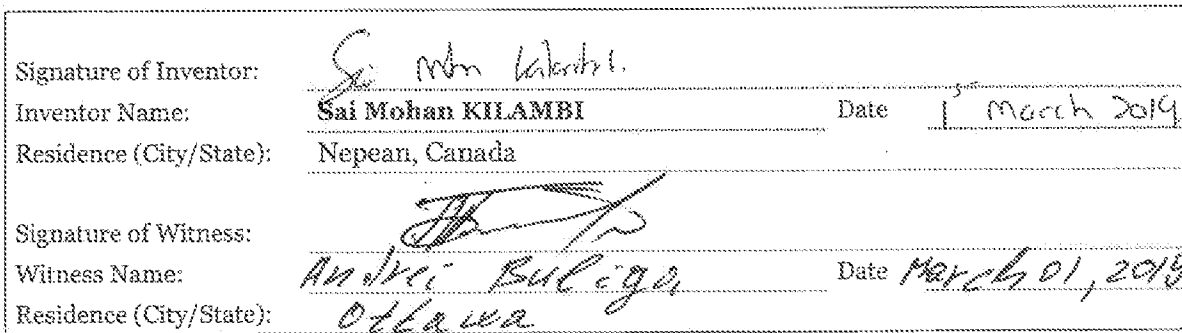 Signature of Inventor: Sai Mohan Kilambi.
Inventor Name: Sai Mohan KILAMBI Date 1st March 2019
Residence (City/State): Nepean, Canada
Signature of Witness:
Witness Name: Andrei Buliga Date March 01, 2019
Residence (City/State): Ottawa